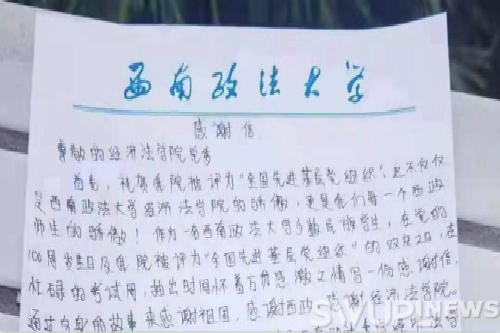 西南政法大学
感谢信
尊敬的经济法学院党委
首先，祝贺我院被评为“全国先进基层党组织”，这不仅仅
是西南政法大学经济法学院的骄傲，更是我们每一个西政
师生的骄傲！作为一名西南政法大学少数民族学生，在党的
100周岁生日及我院被评为“全国先进基层党组织”的双喜之日，在
忙碌的考试周，抽出时间怀着万分感激之情写一份感谢信，
通过自身的故事来感谢祖国，感谢西政，感谢经济法学院。
SWUPLNEWS